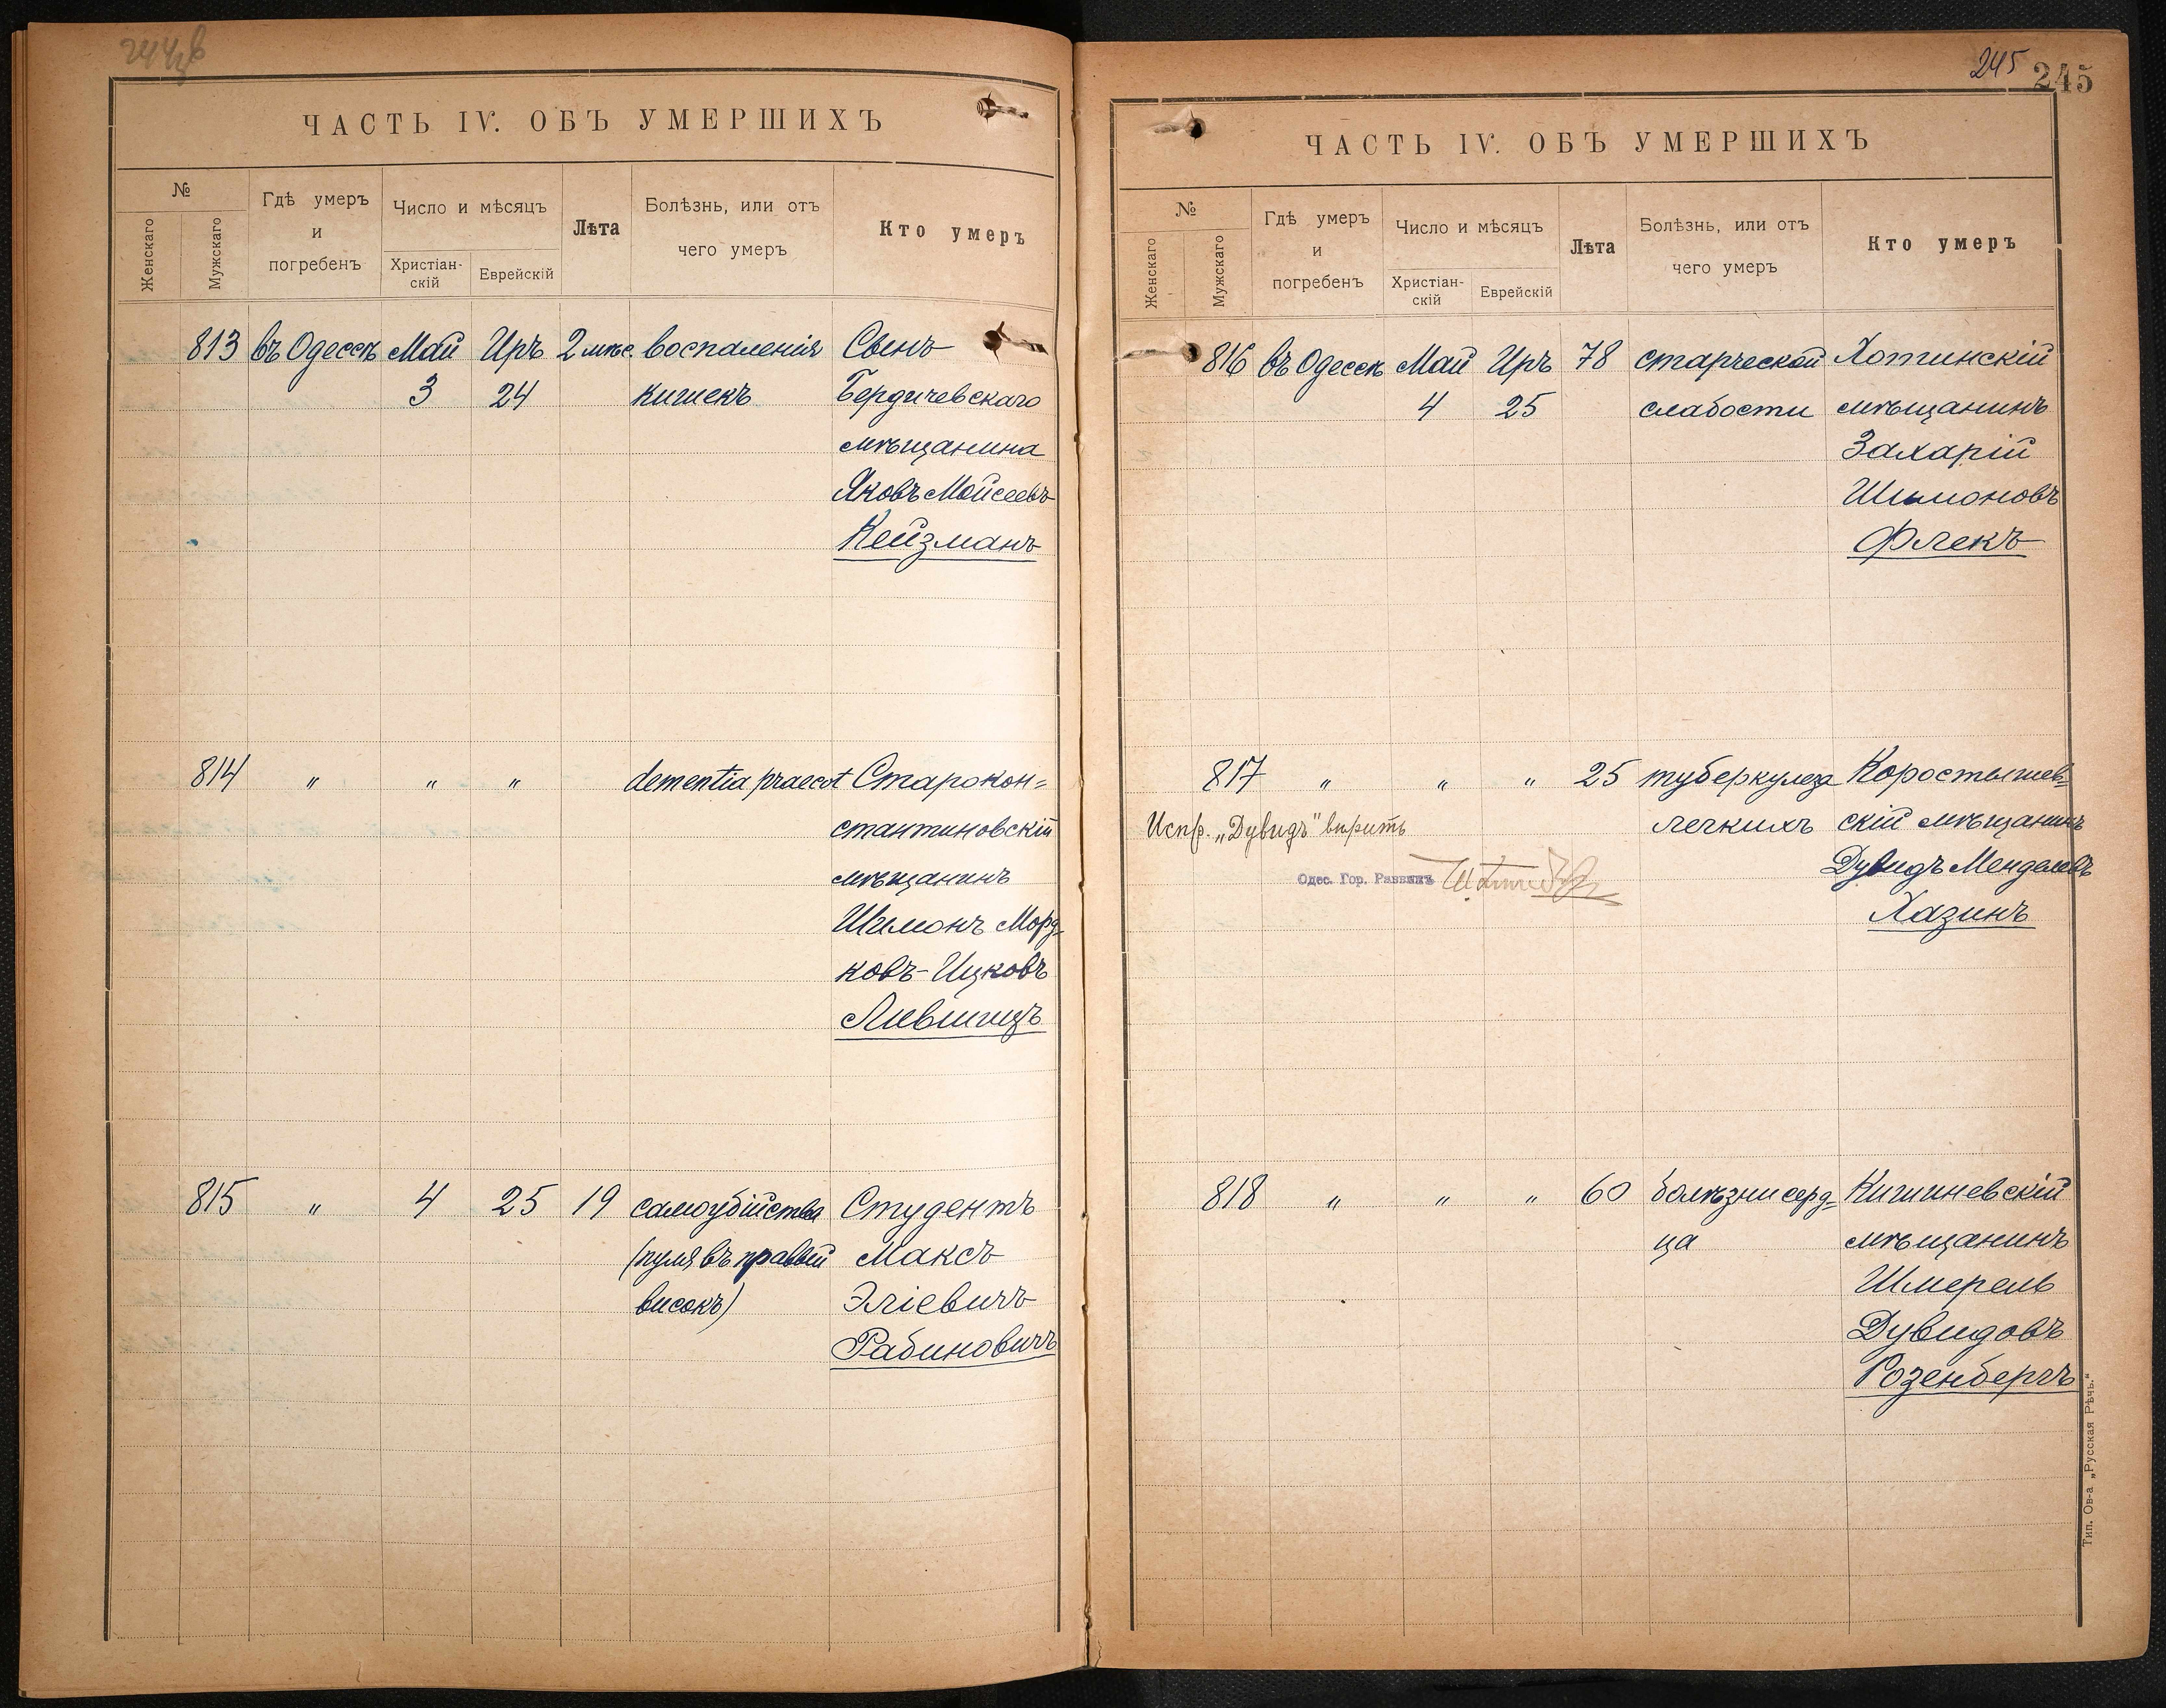 ЧАСТЬ IV. ОБЪ УМЕРШИХЪ
№
Женскаго
Мужскаго
Гдѣ умеръ
и
погребенъ
Число и мѣсяцъ
Христіан-
скій
Еврейскій
Лѣта
Болѣзнь, или отъ
чего умеръ
Кто умеръ
813 въ Одессѣ Май Иръ 2 мѣс. воспаленія Сынъ
3 24 кишекъ Бердичевскаго
мѣщанина
Яковъ Мойсеевъ
Кейзманъ
814 " " " dementia praecot Старокон=
стантиновскій
мѣщанинъ
Шимонъ Морд-
ковъ-Ицковъ
Лившицъ
815 " 4 25 19 самоубійства Студентъ
(пуля въ правый Максъ
високъ) Эліевичъ
Рабиновичъ
245 245
ЧАСТЬ IV. ОБЪ УМЕРШИХЪ
№
Женскаго
Мужскаго
Гдѣ умеръ
и
погребенъ
Число и мѣсяцъ
Христіан-
скій
Еврейскій
Лѣта
Болѣзнь, или отъ
чего умеръ
Кто умеръ
816 въ Одессѣ Май Иръ 78 старческой Хотинскій
4 25 слабости мѣщанинъ
Захарій
Шимоновъ
Флекъ
817 " " " 25 туберкулеза Коростышев-
Испр. „Дувидъ" вѣрить легкихъ скій мѣщанинъ
Одес. Гор. Раввинъ Дувидъ Менделевъ
Хазинъ
818 " " " 60 болѣзни серд- Кишиневскій
ца мѣщанинъ
Шмерель
Дувидовъ
Розенбергъ
Тип. Ов-а „Русская Рѣчь."